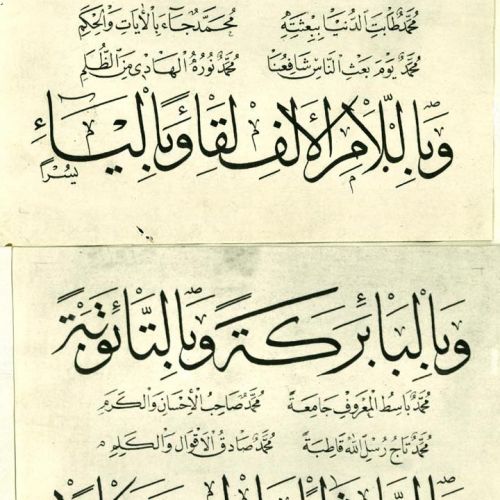 محمد طابت الدنيا ببعثته محمد جاء بالآيات والحكم
محمد يوم بعث الناس شافعنا محمد نوره الهادي من الظلم
وباللام الألف لقاء وبالياء
يسرا
وبالباء بركة وبالتاء توبة
محمد باسط المعروف جامعة محمد صاحب الإحسان والكرم
محمد تاج رسل الله قاطبة محمد صادق الأقوال والكلم